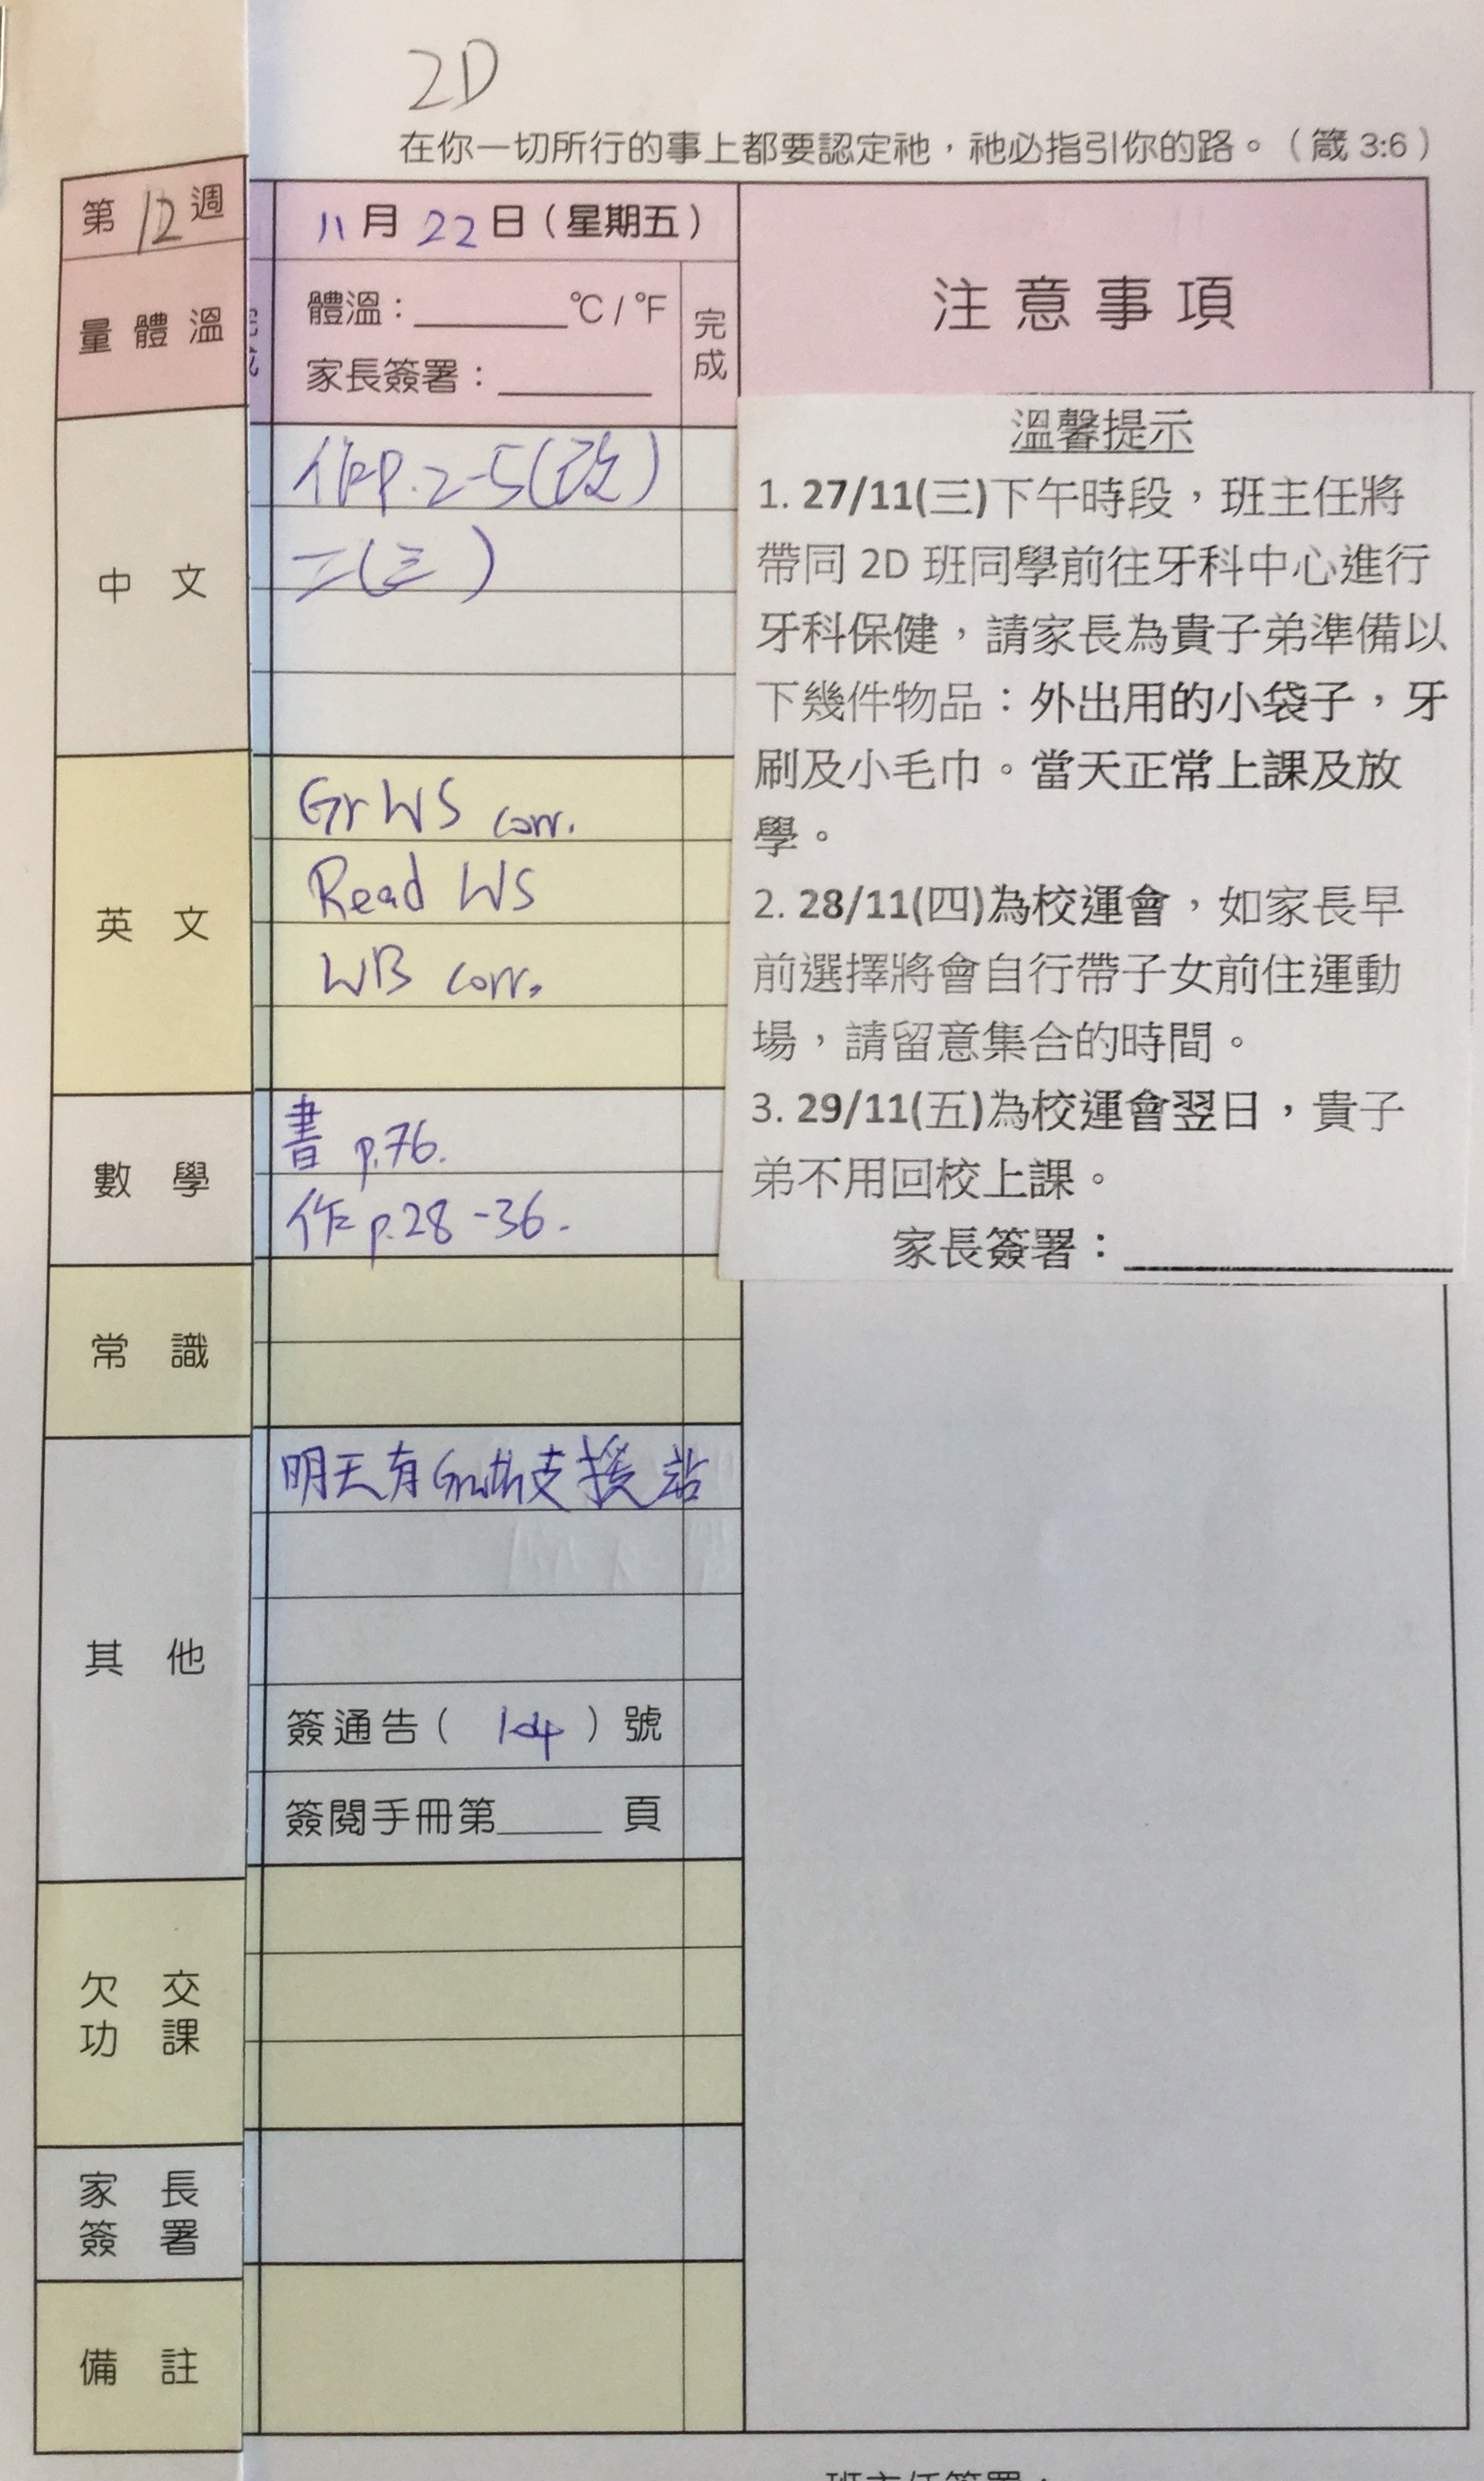 2D
在你一切所行的事上都要認定祂，祂必指引你的路。（箴 3:6）
第 12 週
11 月 22 日（星期五）
注意事項
量體溫
體溫：______°C / °F
家長簽署：______
完成
中文
作P.2-5(改)
二(三)
英文
Gr WS corr.
Read WS
WB corr.
數學
書 p.76.
作 p.28-36.
常識
其他
明天有 支援站
簽通告（ 104 ）號
簽閱手冊第____ 頁
欠交功課
家長簽署
備註
溫馨提示
1. 27/11(三)下午時段，班主任將
帶同 2D 班同學前往牙科中心進行
牙科保健，請家長為貴子弟準備以
下幾件物品：外出用的小袋子，牙
刷及小毛巾。當天正常上課及放
學。
2. 28/11(四)為校運會，如家長早
前選擇將會自行帶子女前住運動
場，請留意集合的時間。
3. 29/11(五)為校運會翌日，貴子
弟不用回校上課。
家長簽署：______
班主任簽署：